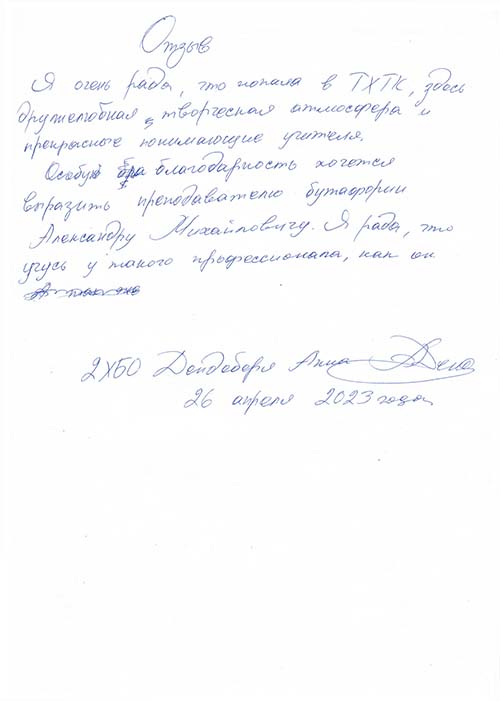 Отзыв
Я очень рада, что попала в ТХТК, здесь
дружелюбная, творческая атмосфера и
прекрасные понимающие учителя.
Особую благодарность хочется
выразить преподавателю бутафории
Александру Михайловичу. Я рада, что
учусь у такого профессионала, как он
2ХБО Анна
26 апреля 2023 года